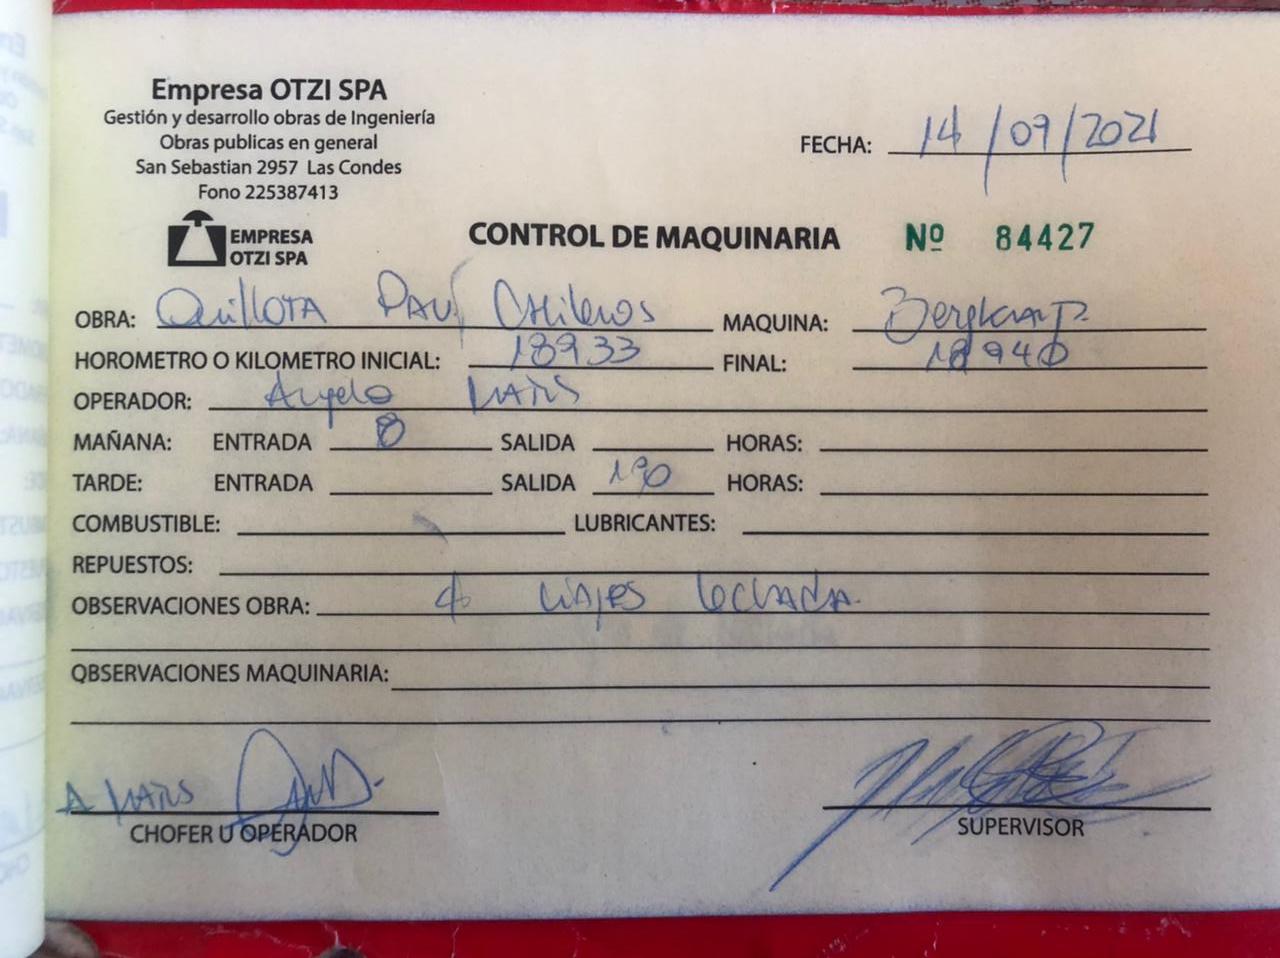 Empresa OTZI SPA
Gestión y desarrollo obras de Ingeniería
Obras publicas en general
San Sebastian 2957 Las Condes
Fono 225387413
FECHA: 14/09/2021
EMPRESA
OTZI SPA
CONTROL DE MAQUINARIA Nº 84427
OBRA: Quillota Chilenos MAQUINA: Bergkamp
HOROMETRO O KILOMETRO INICIAL: 18933 FINAL: 18940
OPERADOR: Angelo
MAÑANA: ENTRADA 8 SALIDA HORAS:
TARDE: ENTRADA SALIDA HORAS:
COMBUSTIBLE: LUBRICANTES:
REPUESTOS:
OBSERVACIONES OBRA: viajes lechada
OBSERVACIONES MAQUINARIA:
CHOFER U OPERADOR
SUPERVISOR